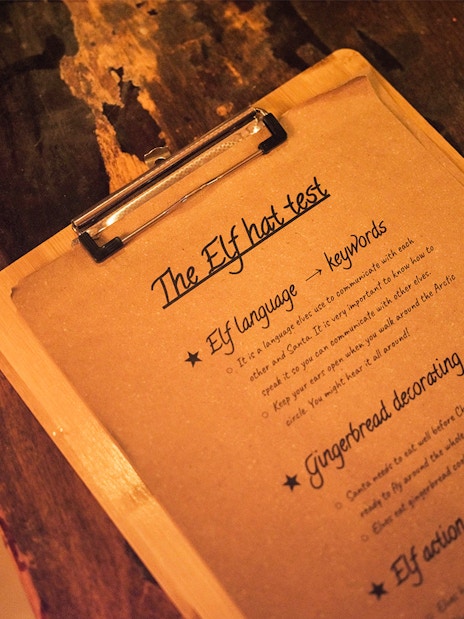 The Elf hat test
★ Elf language → keywords
○ It is a language elves use to communicate with each
other and Santa. It is very important to know how to
speak it so you can communicate with other elves.
○ Keep your ears open when you walk around the Arctic
circle. You might hear it all around!
★ Gingerbread decorating
○ Santa needs to eat well before
ready to fly around the whole
○ Elves eat gingerbread
★ Elf action
○ Elves